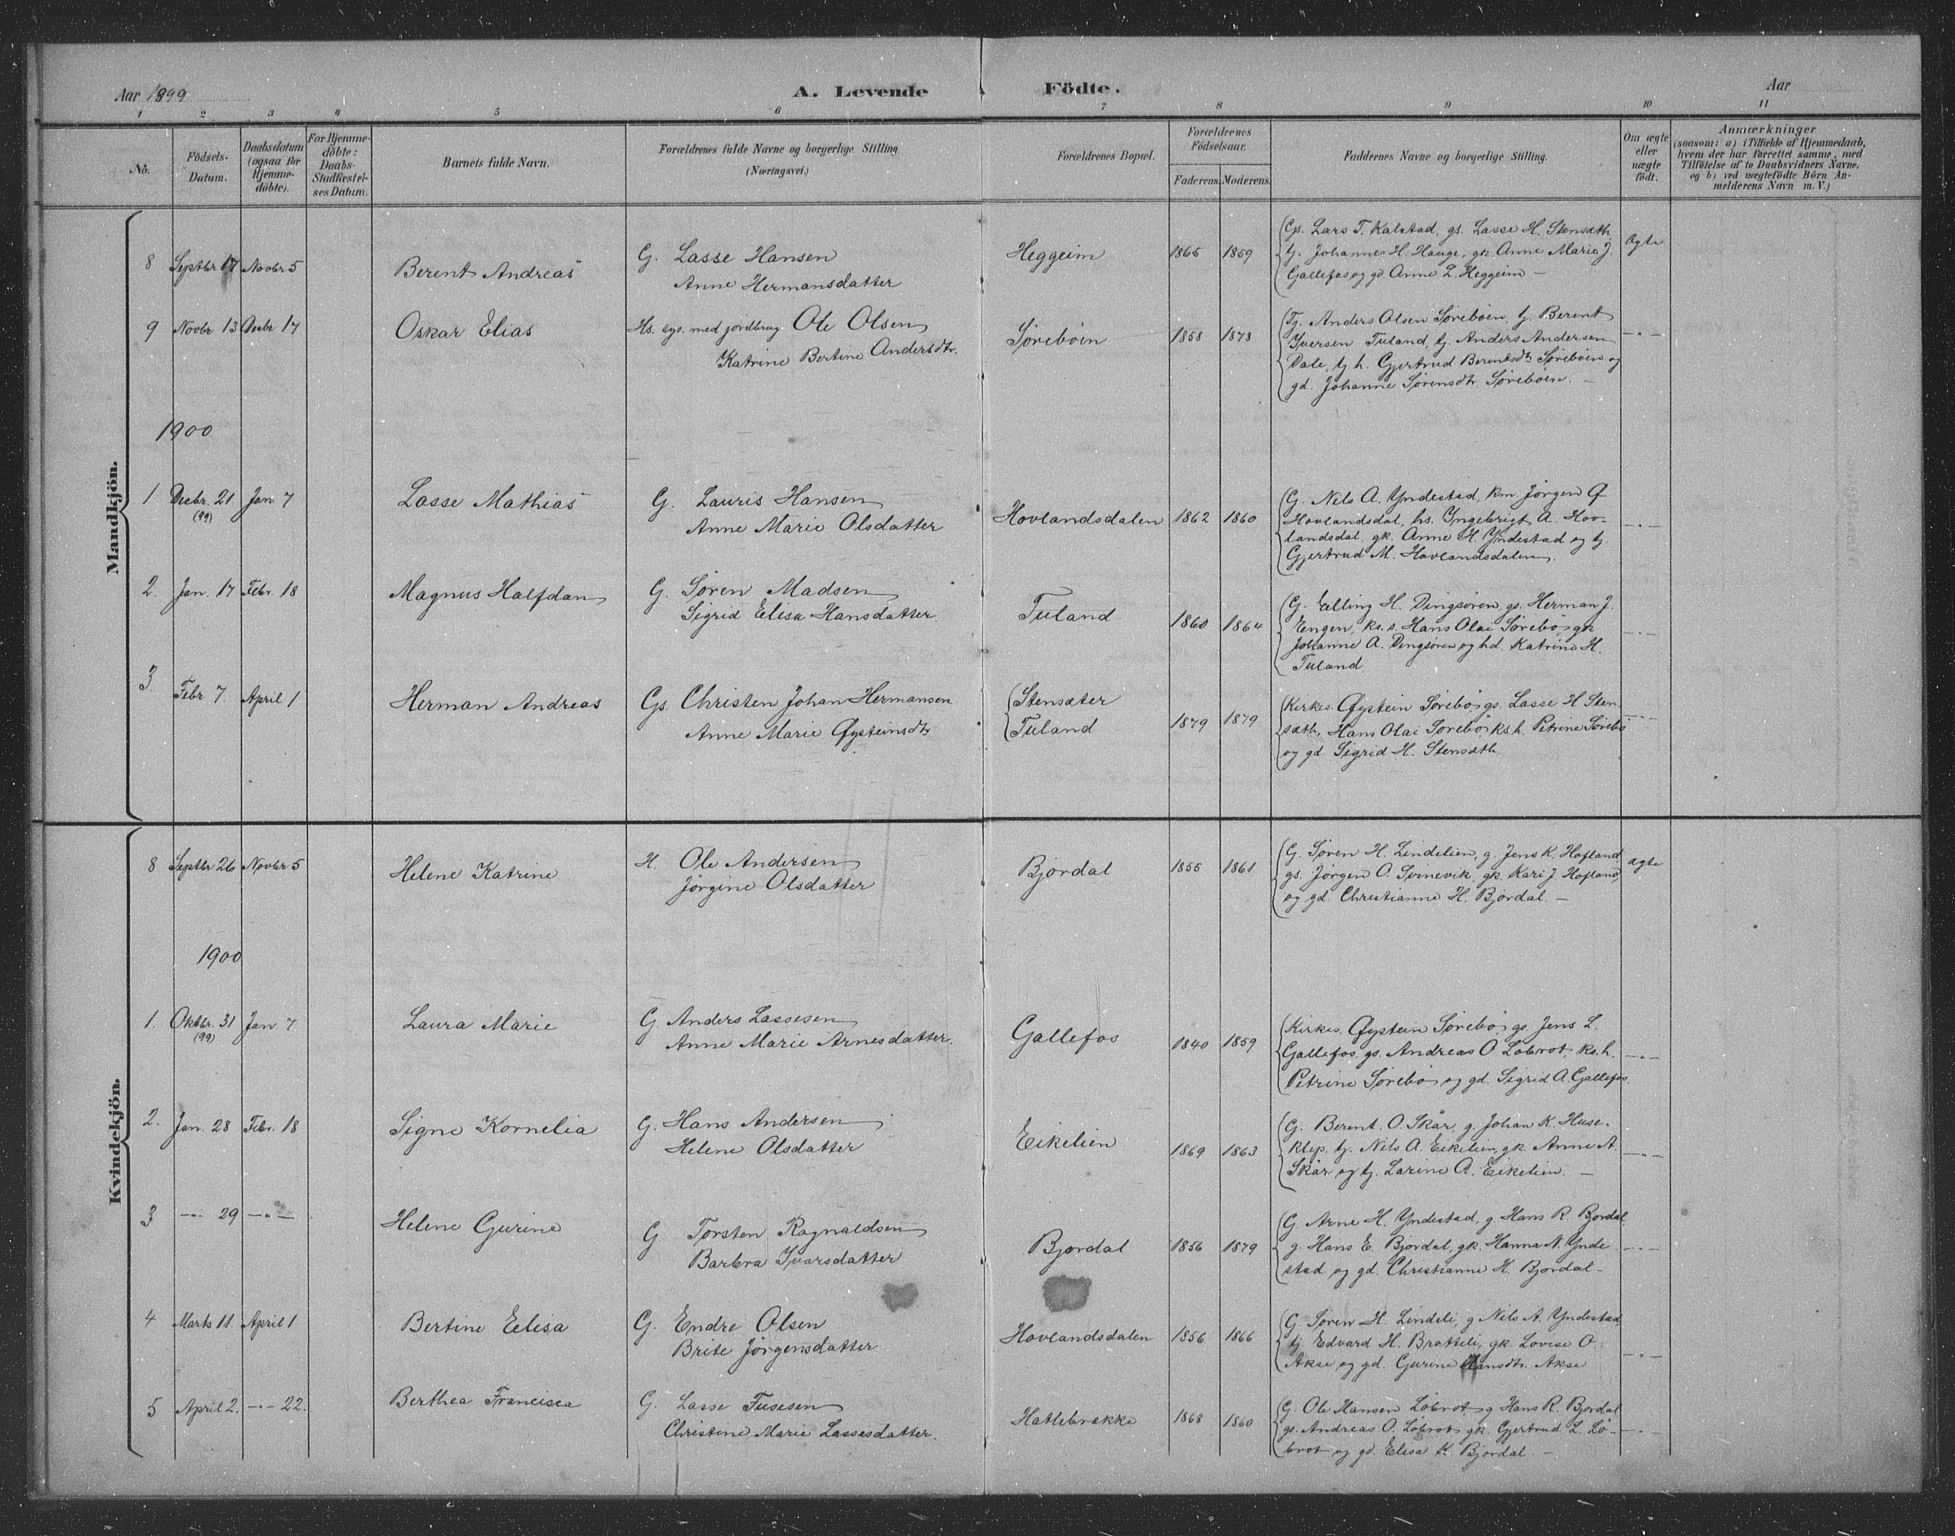 Aar 1899
A. Levende Födte.
Aar
1 2 3 4 5 6 7 8 9 10 11
No.
Födsels-Datum.
Daabsdatum (ogsaa for Hjemmedöbte).
For Hjemmedöbte: Daabs-Stadfæstelses Datum.
Barnets fulde Navn.
Forældrenes fulde Navne og borgerlige Stilling (Næringsvei.)
Forældrenes Bopæl.
Forældrenes Födselsaar.
Faderens. Moderens.
Faddernes Navne og borgerlige Stilling.
Om ægte eller uægte födt.
Anmærkninger
(saasom: a) i Tilfælde af Hjemmedaab,
hvem der har forrettet samme, med
Tilföielse af to Daabsvidners Navne.
og b) ved uægtefödte Börn An-
melderens Navn m. V.)
Mandkjön.
8 Septbr 17 Novbr 5 Berent Andreas G. Lasse Hansen
Anne Hermansdatter
Heggeim 1865 1859
Gs. Lars T. Kalstad, gs. Lasse H. Stensæth
tj. Johannes H. Hauge, gk. Anne Marie J.
Gallefos og gd. Anne L. Heggeim –
Ægte
9 Novbr 13 Decbr 17 Oskar Elias Hs. sys. med jordbrug Ole Olsen
Katrine Bertine Andersdtr.
Sørebøen 1858 1878
Tj. Anders Olsen Sørebøen, tj. Berent
Iversen Tuland, tj. Anders Andersen
Dale, tj. h. Gjertrud Berentsdtr Sørebøen og
gd. Johanne Sørensdtr. Sørebøen. –
–"–
1900
1 Decbr. 21 (99) Jan. 7 Lasse Mathias G. Lauris Hansen
Anne Marie Olsdatter
Hovlandsdalen 1862 1860
G. Nils A. Yndestad, km Jørgen O
Hovlandsdal, hs. Ingebrigt A. Hov-
landsdal, gk. Anne H. Yndestad og tj.
Gjertrud M. Hovlandsdalen.
–"–
2. Jan. 17 Febr. 18 Magnus Halfdan G. Søren Madsen
Sigrid Elisa Hansdatter
Tuland 1860 1864
G. Elling H. Dingsøren, gs. Herman J.
Engen, ks. s. Hans Olai Sørebø, gk
Johanne A. Dingsøren og hd. Katrine H.
Tuland
–"–
3 Febr 7. April 1 Herman Andreas Gs. Christen Johan Hermansen
Anne Marie Øysteinsdtr
Stensæter
Tuland 1879 1879
Kirkes. Øystein Sørebø, gs. Lasse H Sten-
sæth, Hans Olai Sørebø, ks.h. Petrine Sørebø
og gd. Sigrid H. Stensæth.
–"–
Kvindekjön.
8 Septbr 26 Novbr 5 Helene Katrine H. Ole Andersen
Jørgine Olsdatter
Bjordal 1855 1861
G. Søren H. Lindelien, g. Jens K. Hofland
gs. Jørgen O. Svinevik, gk. Kari J. Hofland,
og gd. Christianne H. Bjordal. –
Ægte
1900
1. Oktbr. 31 (99) Jan 7 Laura Marie G. Anders Lassesen
Anne Marie Arnesdatter.
Gallefos 1840 1859
Kirkes. Øystein Sørebø, gs. Jens L.
Gallefos, gs. Andreas O Løbrot, ks.h.
Petrine Sørebø og gd. Sigrid A. Gallefos
–"–
2. Jan. 28 Febr. 18 Signe Kornelia G. Hans Andersen
Helene Olsdatter
Eikelien 1869 1863
G. Berent O. Skår, g. Johan K. Huse-
klep, tj. Nils A. Eikelien, gk. Anne A.
Skår og tj. Larine A. Eikelien. –
–"–
3 –"– 29 –"– Helene Gurine G Torsten Ragnaldsen
Barbra Ivarsdatter
Bjordal 1856 1879
G. Arne H. Yndestad, g Hans R. Bjordal
g. Hans E. Bjordal, gk. Hanna N. Ynde
stad og gd. Christianne H. Bjordal –
–"–
4 Marts 11. April 1 Bertine Elisa G. Endre Olsen
Brite Jørgensdatter
Hovlandsdalen 1856 1866
G. Søren H. Lindeli, g Nils A. Yndestad,
tj. Edvard H. Brattli, gk. Lovise O.
Akse og gd. Gurine Hansdtr. Akse
–"–
5 April 2. –"– 22. Berthea Francisca G. Lasse Tusesen
Christine Marie Lassesdatter.
Hattebrekke 1868 1860
G. Ole Hansen Løbrot, g Hans R. Bjordal
gs. Andreas O. Løbrot, gk. Gjertrud L. Lø-
brot og gd. Elisa K. Bjordal –
–"–